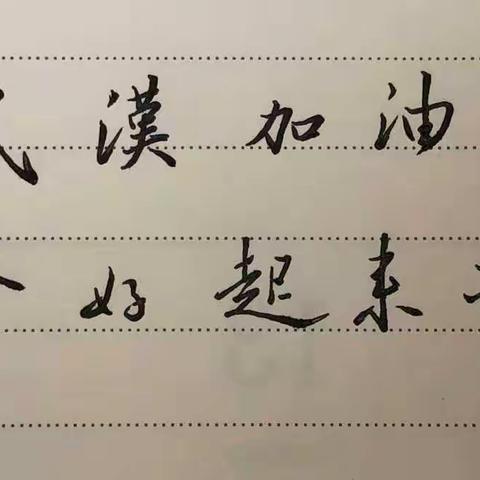 漢加油
好起来